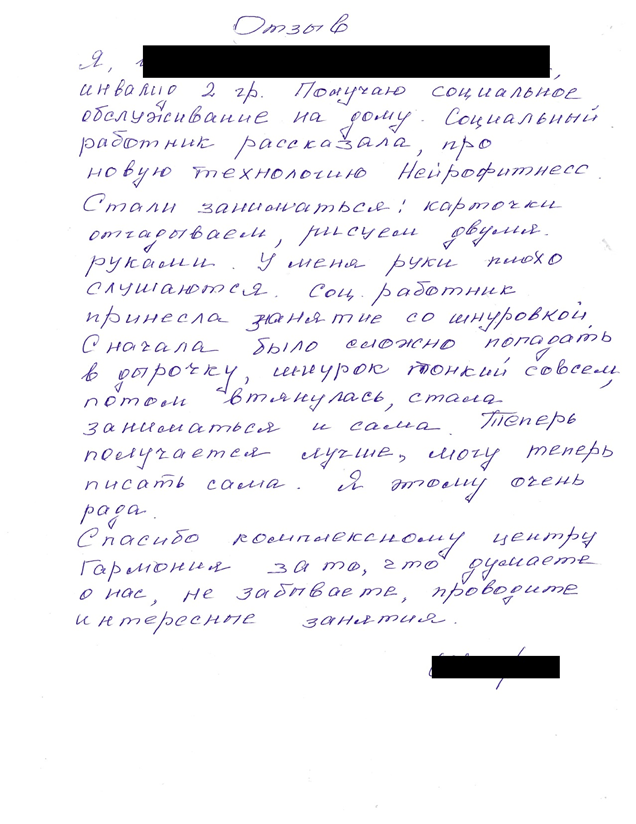 Отзыв
Я,
инвалид 2 гр. Получаю социальное
обслуживание на дому. Социальный
работник рассказала, про
новую технологию Нейрофитнесс.
Стали заниматься: карточки
отгадываем, рисуем двумя
руками. У меня руки плохо
слушаются. Соц. работник
принесла занятие со шнуровкой.
Сначала было сложно попадать
в дырочку, шнурок тонкий совсем,
потом втянулась, стала
заниматься и сама. Теперь
получается лучше, могу теперь
писать сама. Я этому очень
рада.
Спасибо комплексному центру
Гармония за то, что думаете
о нас, не забываете, проводите
интересные занятия.